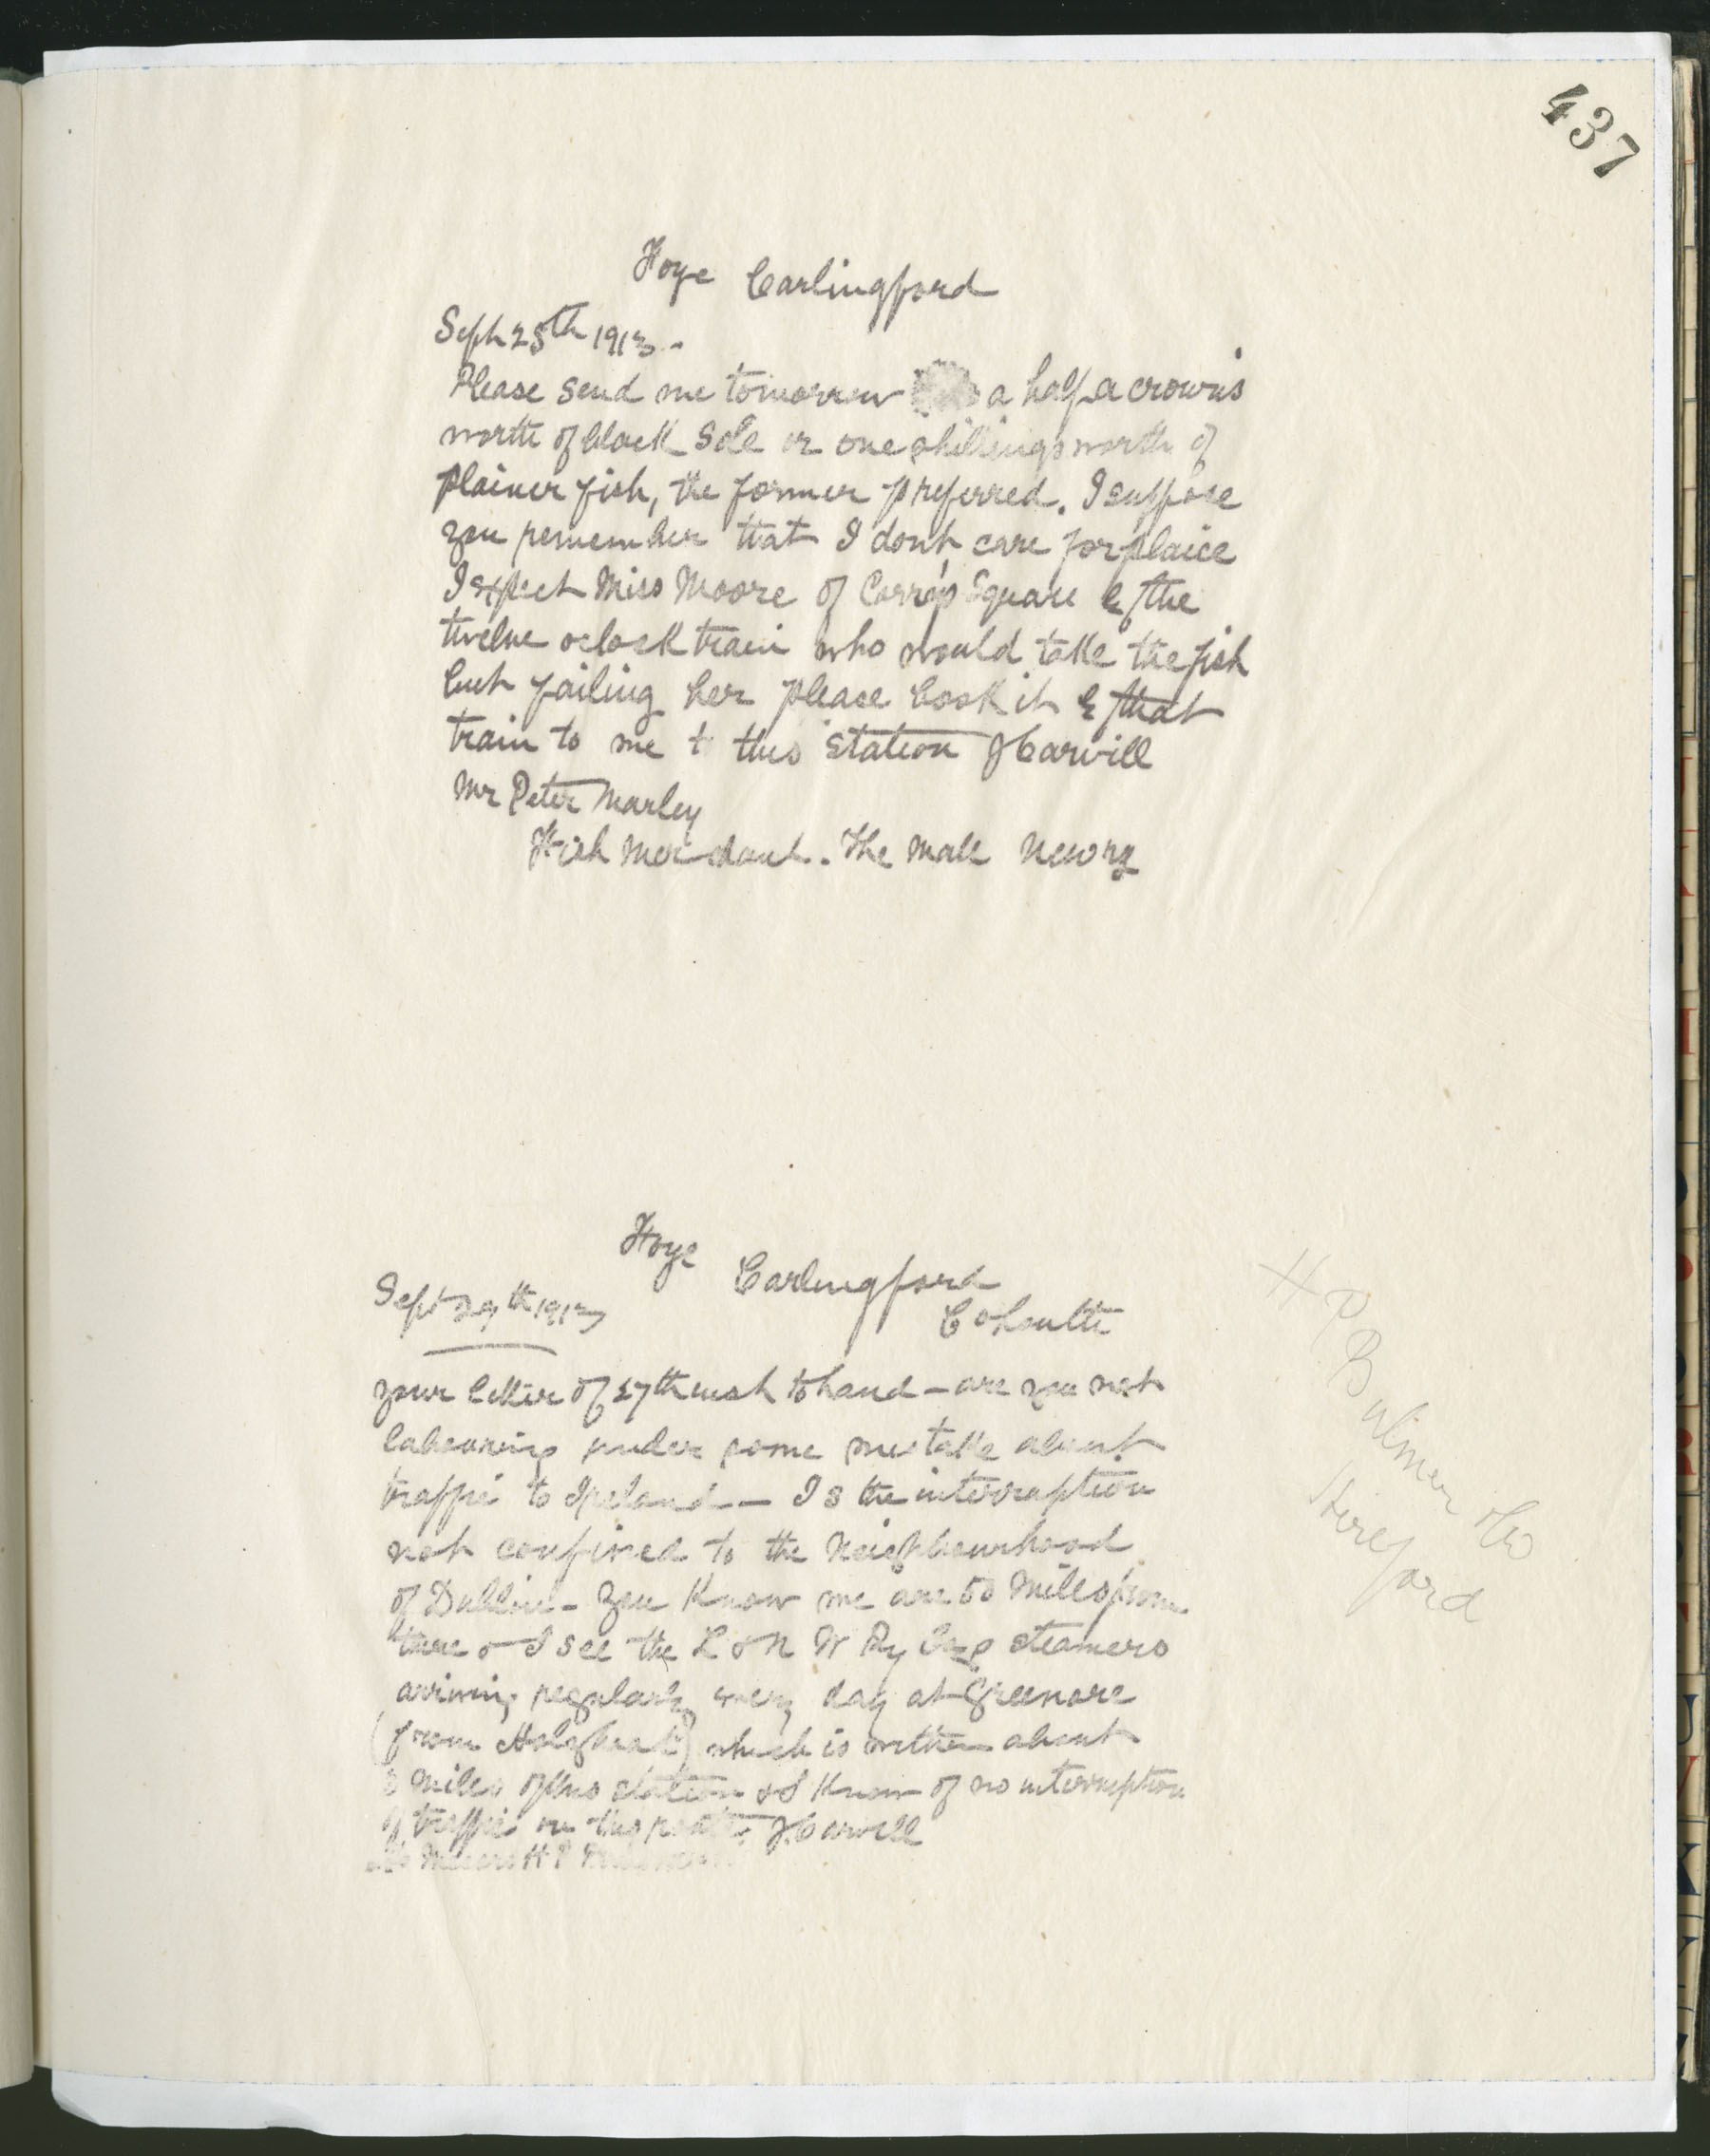 437
Foye Carlingford
Sept 25th 1913 -
Please send me tomorrow a half a crown's
worth of black Sole or one shillings worth of
plainer fish, the former preferred. I suppose
you remember that I dont care for plaice
I expect Miss Moore of Corry's Square by the
twelve oclock train who would take the fish
but failing her please book it by that
train to me to this station JCarvill
Mr Peter Marley
Fish Merchant. The Mall Newry
Foye
Carlingford
Sept 29th 1913
Co Louth
your letter of 27th inst to hand - are you not
labouring under some mistake about
traffic to Ireland - Is the interruption
not confined to the Neighbourhood
of Dublin - you Know we are 50 Miles from
there & I see the L & N W Ry Coys steamers
arriving regularly every day at Greenore
(from Holyhead) which is within about
Miles of this station & I Know of no interruption
of traffic on this route. J. Carvill
Messrs H P
H P Bulmer & Co
Hereford